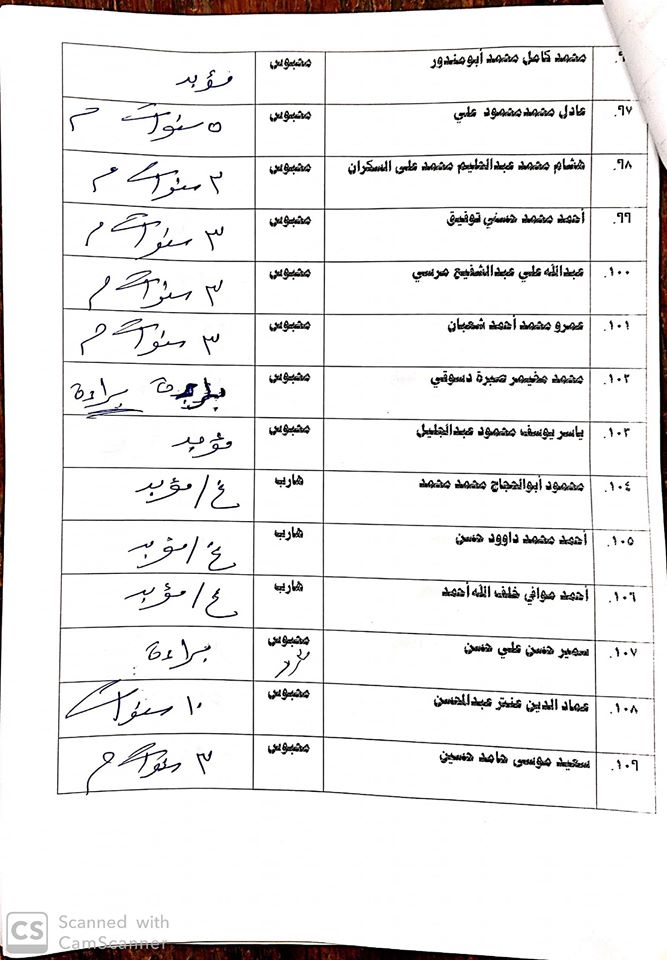 محمد كامل محمد أبو مندور محبوس مؤبد
٩٧. عادل محمد محمود علي محبوس ٥ سنوات م
٩٨. هشام محمد عبدالحليم محمد على السكران محبوس ٣ سنوات م
٩٩. أحمد محمد حسني توفيق محبوس ٣ سنوات م
١٠٠. عبدالله علي عبدالشفيع مرسي محبوس ٣ سنوات م
١٠١. عمرو محمد أحمد شعبان محبوس ٣ سنوات م
١٠٢. محمد مخيمر صبرة دسوقي محبوس براءة
١٠٣. ياسر يوسف محمود عبدالجليل محبوس مؤبد
١٠٤. محمود أبوالحجاج محمد محمد هارب غ / مؤبد
١٠٥. أحمد محمد داوود حسن هارب غ / مؤبد
١٠٦. أحمد موافي خلف الله أحمد هارب غ / مؤبد
١٠٧. سمير حسن علي حسن محبوس براءة
١٠٨. عماد الدين عنتر عبدالمحسن محبوس ١٠ سنوات
١٠٩. سعيد موسى حامد حسين محبوس ٣ سنوات م
CS Scanned with
CamScanner